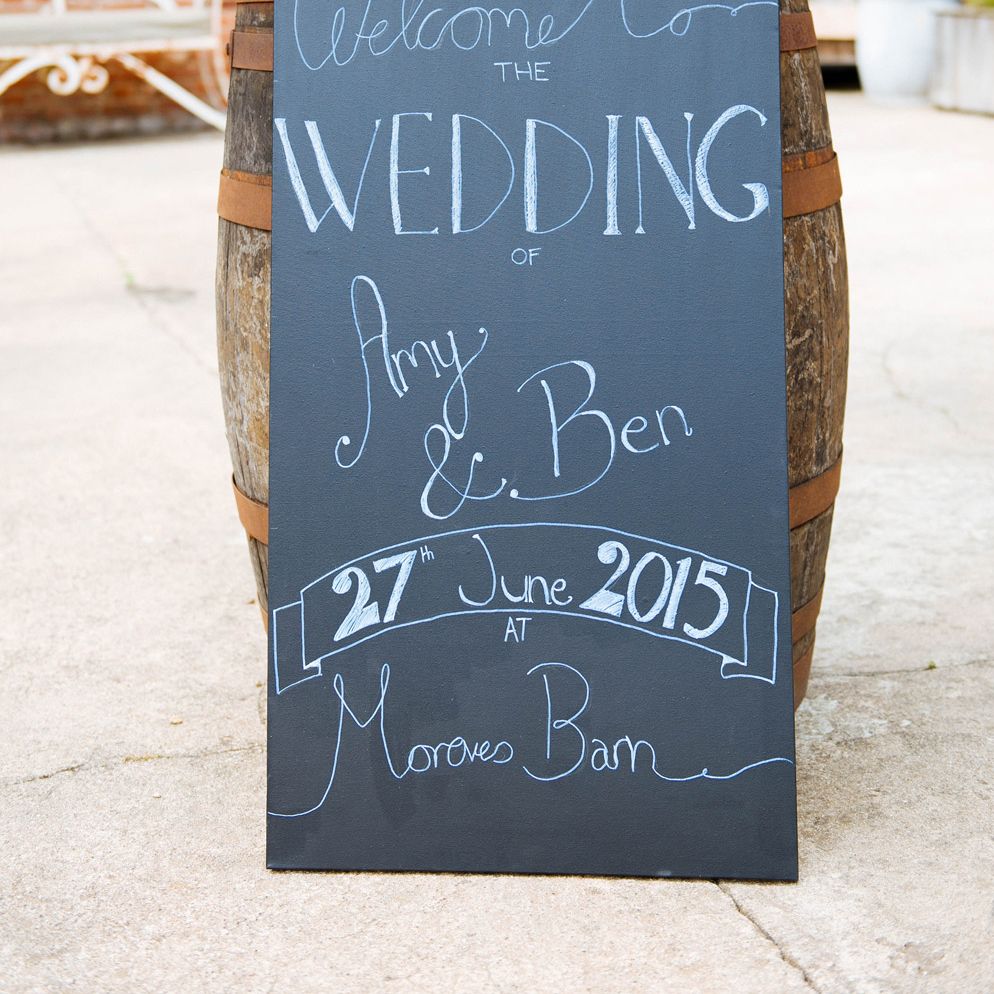 Welcome to
THE
WEDDING
OF
Amy
& Ben
27th June 2015
AT
Moroves Barn